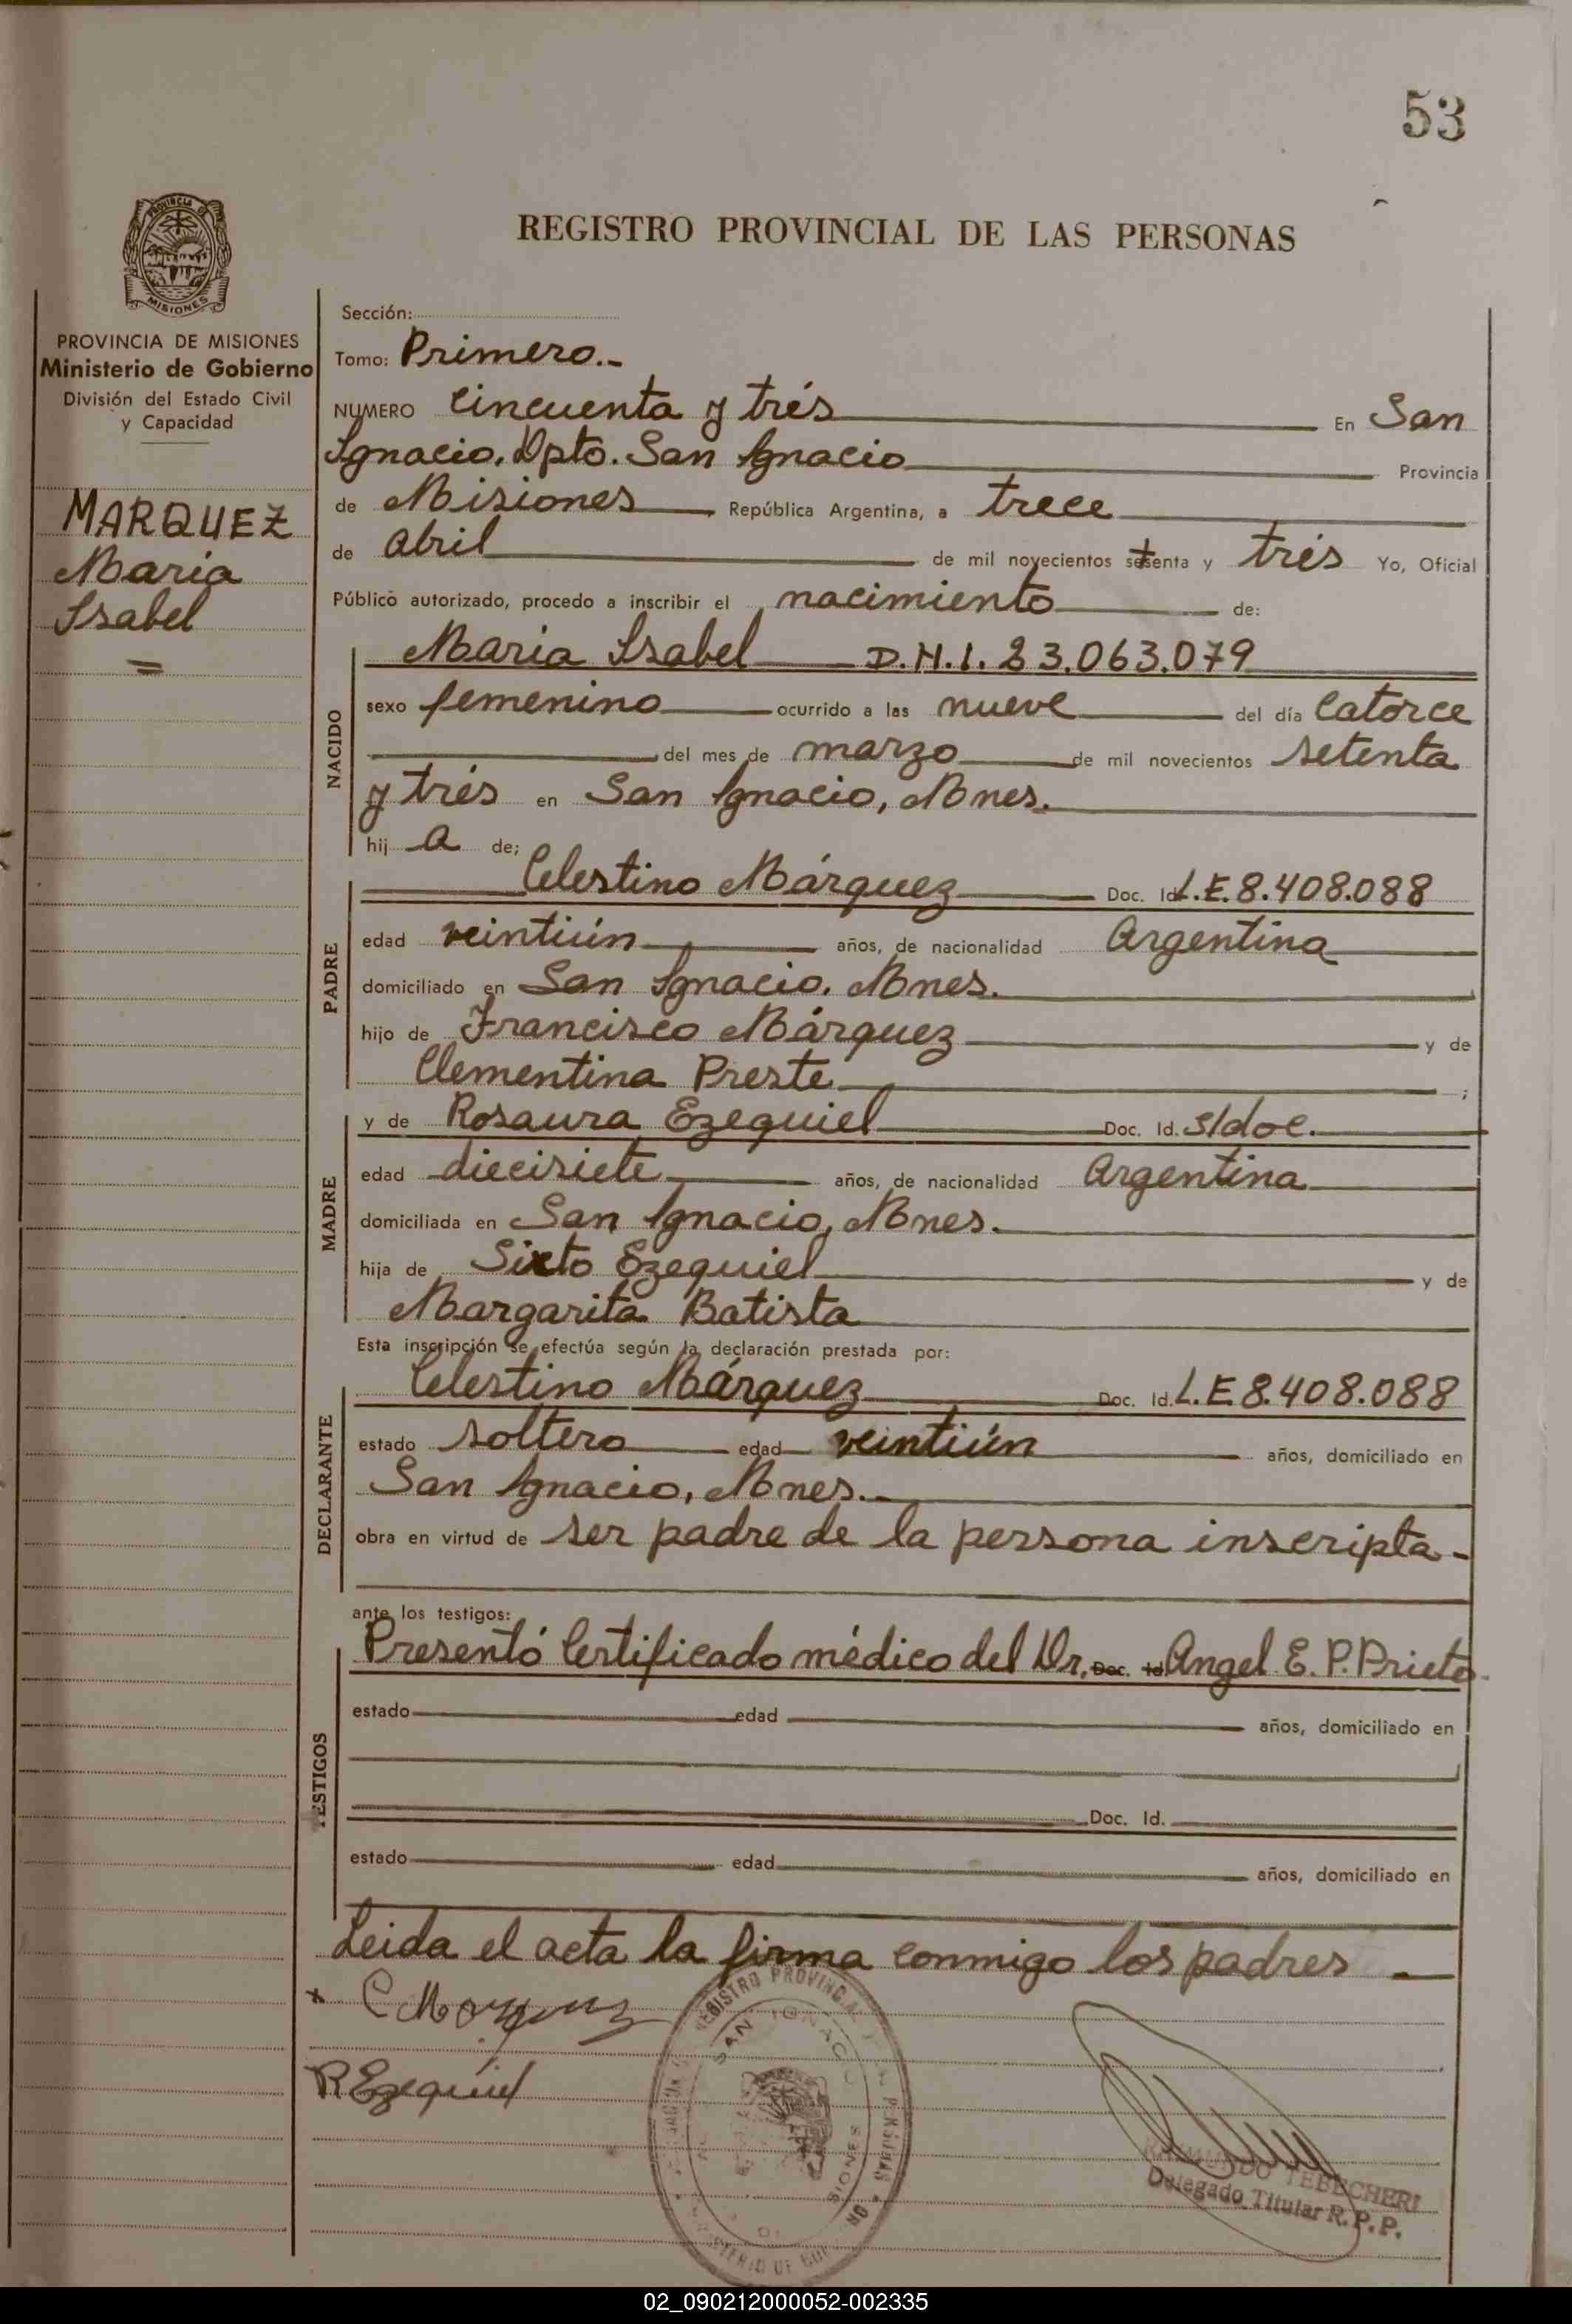 53
REGISTRO PROVINCIAL DE LAS PERSONAS
PROVINCIA DE
MISIONES
PROVINCIA DE MISIONES
Ministerio de Gobierno
División del Estado Civil
y Capacidad
MARQUEZ
Maria
Isabel
=
Sección:
Tomo: Primero.-
NUMERO Cincuenta y trés En San
Ignacio, Dpto. San Ignacio Provincia
de Misiones República Argentina, a trece
de abril de mil novecientos setenta y trés Yo, Oficial
Público autorizado, procedo a inscribir el nacimiento de:
NACIDO
Maria Isabel D.N.I. 23.063.079
sexo femenino ocurrido a las nueve del día Catorce
del mes de marzo de mil novecientos setenta
y trés en San Ignacio, Mnes.
hij a de;
PADRE
Celestino Márquez Doc. Id. L.E. 8.408.088
edad veintiún años, de nacionalidad Argentina
domiciliado en San Ignacio, Mnes.
hijo de Francisco Márquez y de
Clementina Preste ;
MADRE
y de Rosaura Ezequiel Doc. Id. s/doc.
edad diecisiete años, de nacionalidad Argentina
domiciliada en San Ignacio, Mnes.
hija de Sixto Ezequiel y de
Margarita Batista
Esta inscripción se efectúa según la declaración prestada por:
DECLARANTE
Celestino Márquez Doc. Id. L.E 8.408.088
estado soltero edad veintiún años, domiciliado en
San Ignacio, Mnes.-
obra en virtud de ser padre de la persona inscripta-
ante los testigos:
TESTIGOS
Presentó Certificado médico del Dr. Doc. Id. Angel E. P. Prieto.
estado edad años, domiciliado en
Doc. Id.
estado edad años, domiciliado en
Leida el acta la firma conmigo los padres -
x C Marquez
R Ezequiel
REGISTRO PROVINCIAL
SAN IGNACIO
MISIONES
RAIMUNDO TEBECHERI
Delegado Titular R.P.P.
02_090212000052-002335